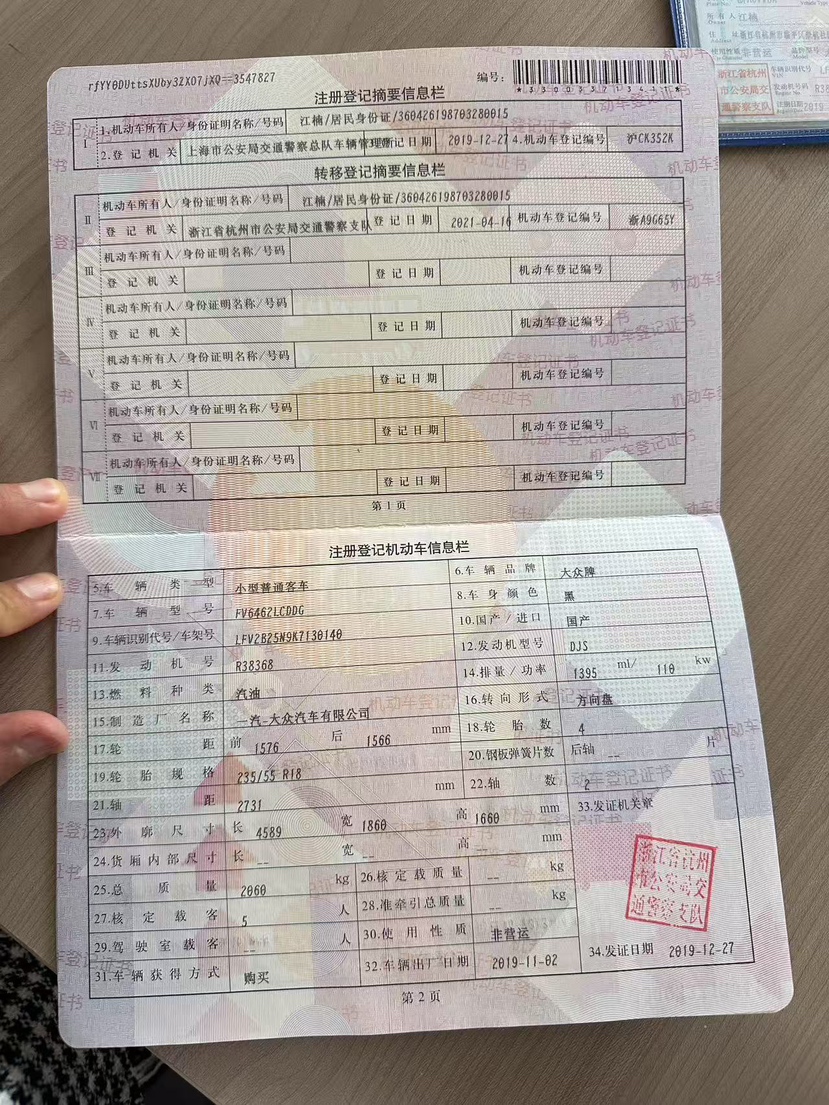 rfYY0DUttsXUby3ZXO7jXQ==3547827
编号:
注册登记摘要信息栏
Ⅰ 1.机动车所有人/身份证明名称/号码 江楠/居民身份证/360426198703280015
2.登记机关 上海市公安局交通警察总队车辆管理所 登记日期 2019-12-27 4.机动车登记编号 沪CK352K
转移登记摘要信息栏
Ⅱ 机动车所有人/身份证明名称/号码 江楠/居民身份证/360426198703280015
登记机关 浙江省杭州市公安局交通警察支队 登记日期 2021-04-16 机动车登记编号 浙A9G65Y
Ⅲ 机动车所有人/身份证明名称/号码
登记机关 登记日期 机动车登记编号
Ⅳ 机动车所有人/身份证明名称/号码
登记机关 登记日期 机动车登记编号
Ⅴ 机动车所有人/身份证明名称/号码
登记机关 登记日期 机动车登记编号
Ⅵ 机动车所有人/身份证明名称/号码
登记机关 登记日期 机动车登记编号
Ⅶ 机动车所有人/身份证明名称/号码
登记机关 登记日期 机动车登记编号
第1页
注册登记机动车信息栏
5.车辆类型 小型普通客车 6.车辆品牌 大众牌
7.车辆型号 FV6462LCDDG 8.车身颜色 黑
9.车辆识别代号/车架号 LFV2B25N9K7130140 10.国产/进口 国产
11.发动机号 R38368 12.发动机型号 DJS
13.燃料种类 汽油 14.排量/功率 1395 ml/ 110 kw
15.制造厂名称 一汽-大众汽车有限公司 16.转向形式 方向盘
17.轮距 前 1576 后 1566 mm 18.轮胎数 4
19.轮胎规格 235/55 R18 20.钢板弹簧片数 后轴 -- 片
21.轴距 2731 mm 22.轴数 2
23.外廓尺寸 长 4589 宽 1860 高 1660 mm 33.发证机关章
24.货厢内部尺寸 长 -- 宽 -- 高 -- mm
25.总质量 2060 kg 26.核定载质量 -- kg
27.核定载客 5 人 28.准牵引总质量 -- kg
29.驾驶室载客 -- 人 30.使用性质 非营运
31.车辆获得方式 购买 32.车辆出厂日期 2019-11-02 34.发证日期 2019-12-27
浙江省杭州
市公安局交
通警察支队
第2页
所有人 江楠
使用性质 非营运
浙江省杭州
市公安局交
通警察支队
车辆识别代号
发动机号码
注册日期